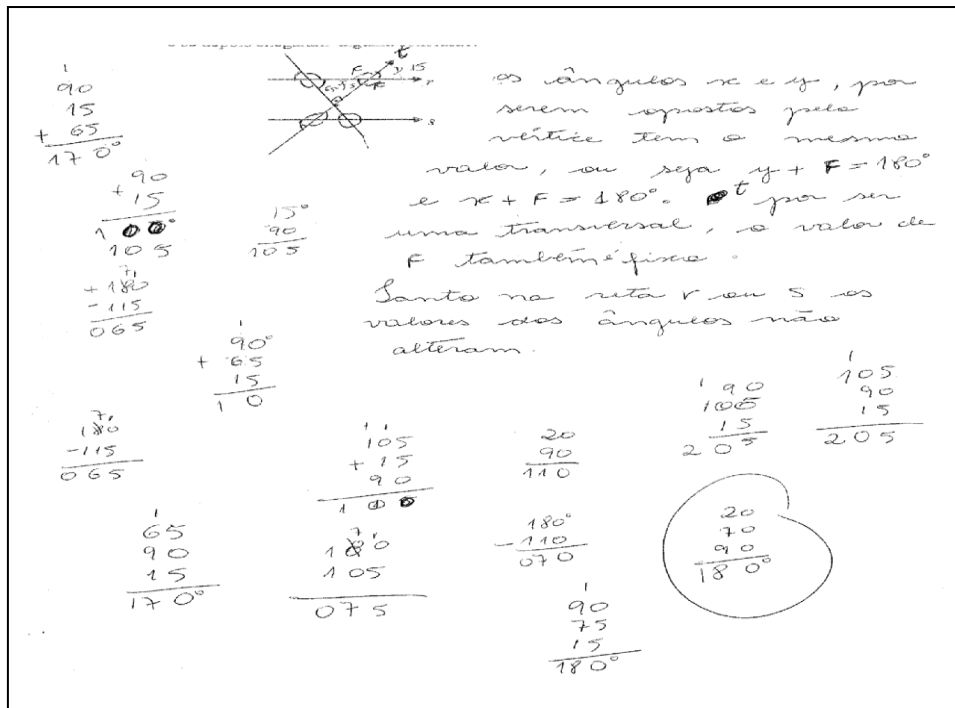 t
y 15
r
s
os ângulos x e y, por
serem opostos pelo
vértice tem o mesmo
valor, ou seja y + F = 180°
e x + F = 180°. t por ser
uma transversal, o valor de
F também é fixo.
Tanto na reta r ou s os
valores dos ângulos não
alteram.
1
90
15
+ 65
170°
90
+ 15
105
15°
90
105
+ 180
- 115
065
1
90°
+ 65
15
1 0
180
-115
065
105
+ 15
90
1
20
90
110
1 90
105
15
205
1
105
90
15
205
1
65
90
15
170°
180
105
075
180°
- 110
070
20
70
90
180°
1
90
75
15
180°